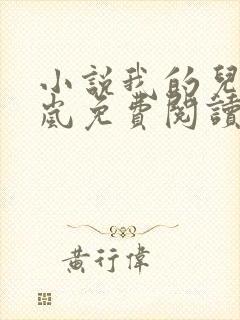 小説我的兒
嵐免費閱讀
黃行偉